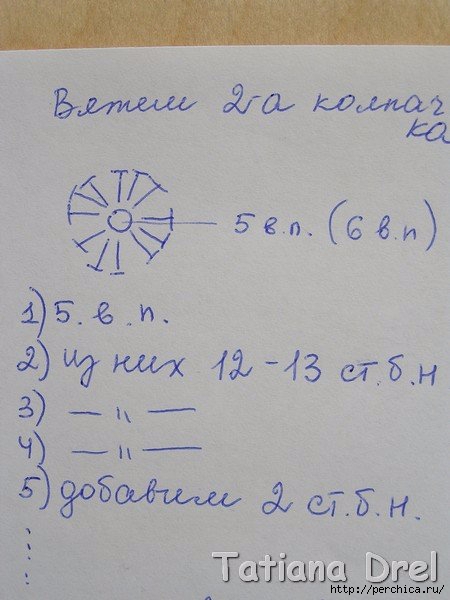 Вяжем 2-а колпач
ка
5 в.п. (6 в.п)
1) 5. в. п.
2) из них 12-13 ст.б.н
3) — " —
4) — " —
5) добавим 2 ст.б.н.
Tatiana Drel
http://perchica.ru/